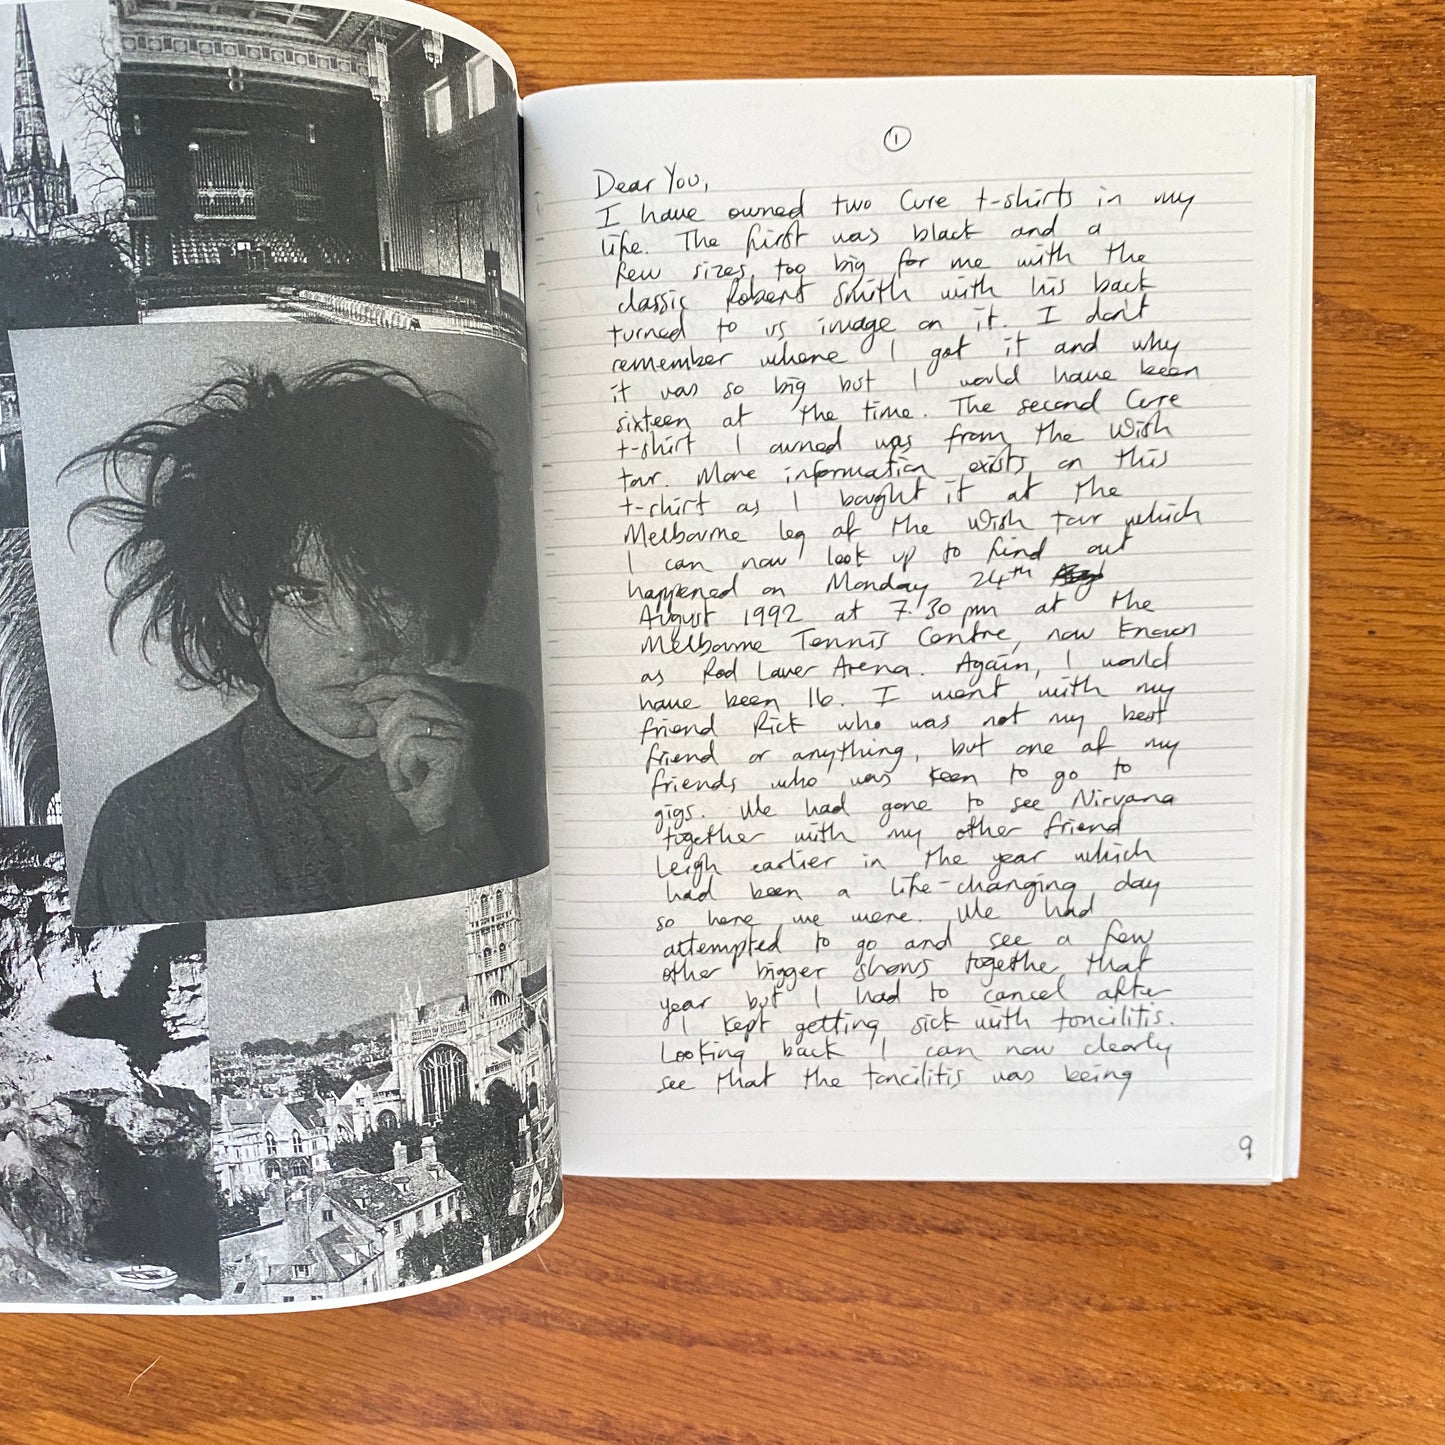 1
Dear You,
I have owned two Cure t-shirts in my
life. The first was black and a
few sizes too big for me with the
classic Robert Smith with his back
turned to us image on it. I don't
remember where I got it and why
it was so big but I would have been
sixteen at the time. The second Cure
t-shirt I owned was from the Wish
tour. More information exists on this
t-shirt as I bought it at the
Melbourne leg of the Wish tour which
I can now look up to find out
happened on Monday 24th
August 1992 at 7.30 pm at the
Melbourne Tennis Centre, now known
as Rod Laver Arena. Again, I would
have been 16. I went with my
friend Rick who was not my best
friend or anything, but one of my
friends who was keen to go to
gigs. We had gone to see Nirvana
together with my other friend
Leigh earlier in the year which
had been a life-changing day
so here we were. We had
attempted to go and see a few
other bigger shows together that
year but I had to cancel after
I kept getting sick with toncilitis.
Looking back I can now clearly
see that the toncilitis was being
9